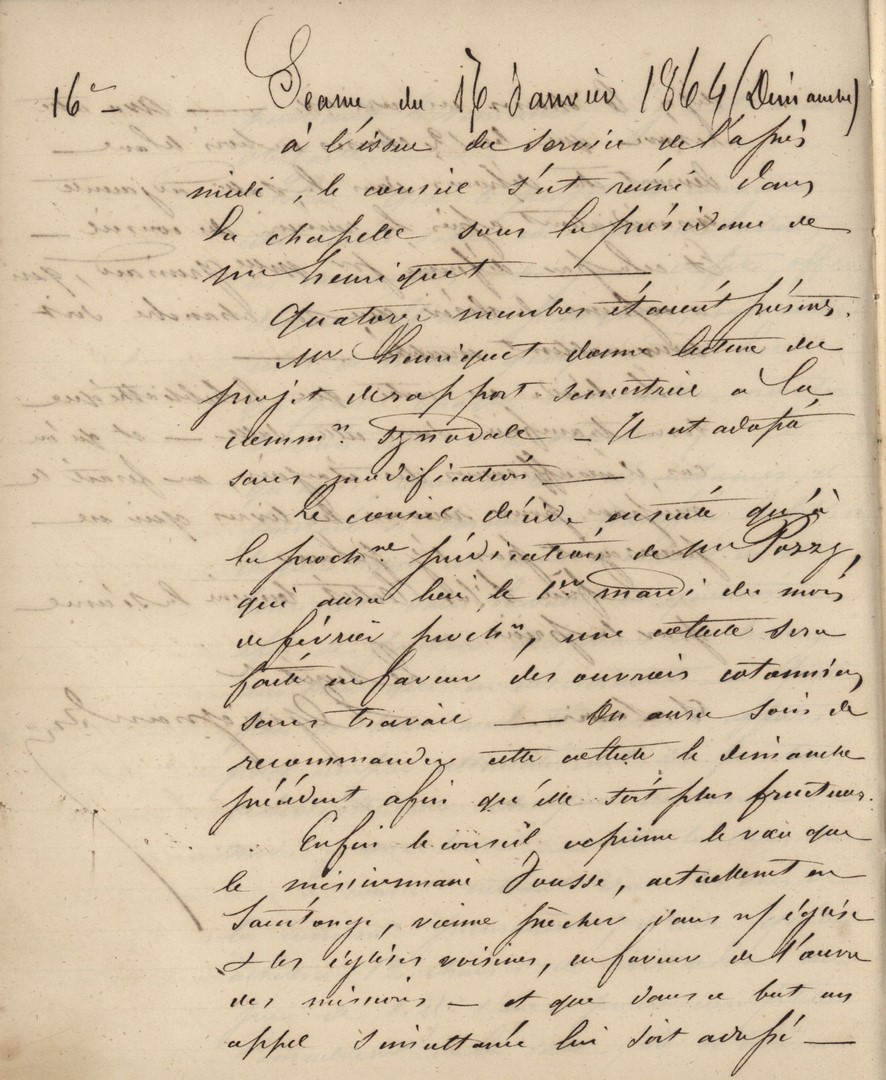 16e — Séance du 17 Janvier 1864 (Dimanche)
à l'issue du service de l'après
midi, le conseil s'est réuni dans
la chapelle sous la présidence de
Mr henriquet —
Quatorze membres étaient présens.
Mr henriquet donne lecture du
projet de rapport semestriel à la
common. synodale — Il est adopté
sans modification —
Le conseil décide ensuite qu'à
la prochne prédication de Mr Pozzy,
qui aura lieu le 1er mardi du mois
de février prochn, une collecte sera
faite en faveur des ouvriers cotonniers
sans travail — On aura soin de
recommander cette collecte le dimanche
précédent afin qu'elle soit plus fructueuse.
Enfin le conseil exprime le vœu que
le missionnaire Jousse, actuellement en
Saintonge, vienne prêcher dans n/ église
& les églises voisines, en faveur de l'œuvre
des missions — et que dans ce but un
appel simultané lui soit adressé —